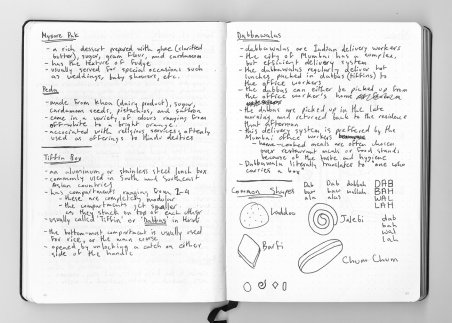 Mysore Pak
- a rich dessert prepared with ghee (clarified
butter), sugar, gram flour, and cardamom
- has the texture of fudge
- usually served for special occasions such
as weddings, baby showers, etc.
Peda
- made from khoa (dairy product), sugar,
cardamom seeds, pistachios, and saffron
- come in a variety of colours ranging from
off-white to a bright orange.
- associated with religious services, often
used as offerings to Hindu deities
Tiffin Box
- an aluminum, or stainless steel lunch box
commonly used in South and Southeast
Asian countries
- has compartments ranging from 2-4
- these are completely modular
- the compartments get smaller
as they stack on top of each other
- usually called 'Tiffin' or 'Dabbas' in Hindi
- the bottom-most compartment is usually used
for rice, or the main course
- opened by unlocking a catch on either
side of the handle
Dabbawalas
- dabbawalas are Indian delivery workers
- the city of Mumbai has a complex,
but efficient delivery system
- the dabbawalas regularly deliver hot
lunches, packed in dabbas (tiffins) to
the office workers
- the dabbas can either be picked up from
the office worker's home
- the dabbas are picked up in the late
morning, and returned back to the residence
that afternoon
- this delivery system is preferred by the
Mumbai office workers
- home-cooked meals are often chosen
over restaurant meals or food stands
because of the taste and hygiene
- Dabbawala literally translates to "one who
carries a box"
Common Shapes
Dab Dab dabbah DAB
BAH
WAL
LAH
Laddoo
Jalebi
dab
bah
wal
lah
Barfi
Chum Chum